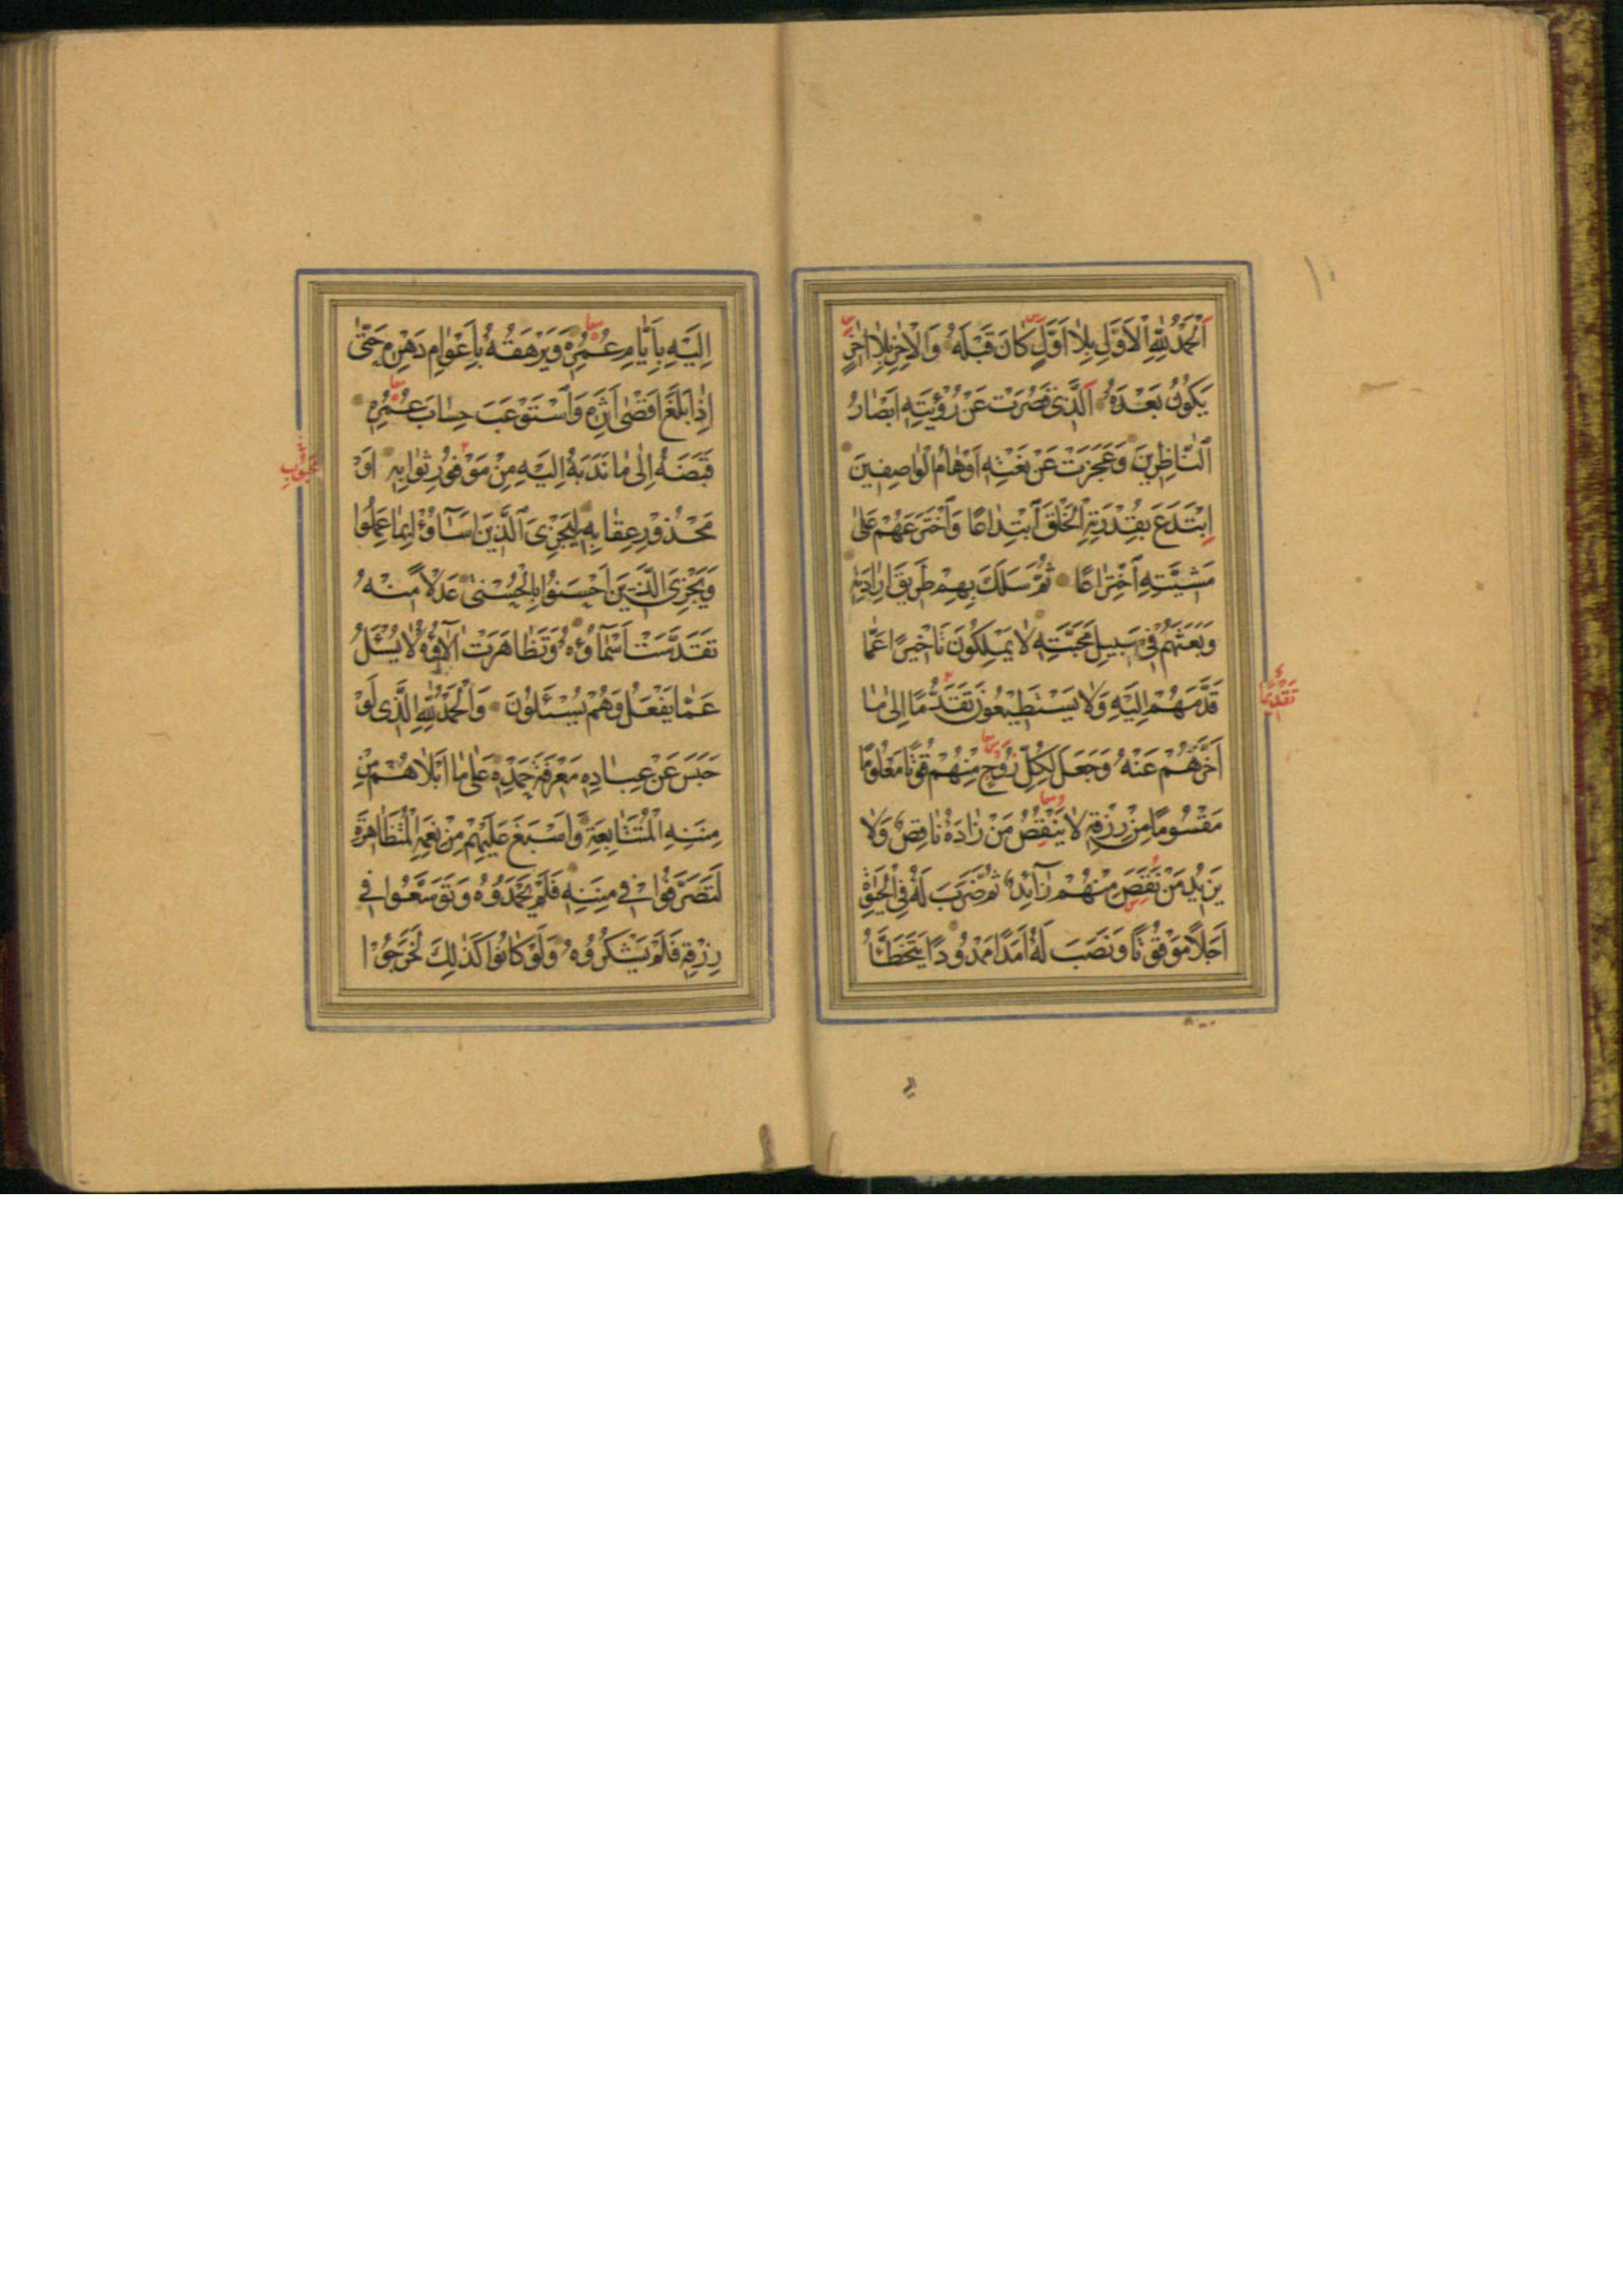 اَلْحَمْدُ لِلّٰهِ الْاَوَّلِ بِلٰا اَوَّلٍ كٰانَ قَبْلَهُ وَالْاٰخِرِ بِلٰا اٰخِرٍ
يَكُونُ بَعْدَهُ اَلَّذِي قَصُرَتْ عَنْ رُؤْيَتِهِ اَبْصٰارُ
النّٰاظِرِينَ وَعَجَزَتْ عَنْ نَعْتِهِ اَوْهٰامُ الْوٰاصِفِينَ
اِبْتَدَعَ بِقُدْرَتِهِ الْخَلْقَ ابْتِدٰاعًا وَاخْتَرَعَهُمْ عَلىٰ
مَشِيَّتِهِ اخْتِرٰاعًا ثُمَّ سَلَكَ بِهِمْ طَرِيقَ اِرٰادَتِهِ
وَبَعَثَهُمْ فِي سَبِيلِ مَحَبَّتِهِ لٰا يَمْلِكُونَ تَاْخِيرًا عَمّٰا
قَدَّمَهُمْ اِلَيْهِ وَلٰا يَسْتَطِيعُونَ تَقَدُّمًا اِلىٰ مٰا
تَقْدِيمًا
اَخَّرَهُمْ عَنْهُ وَجَعَلَ لِكُلِّ رُوحٍ مِنْهُمْ قُوتًا مَعْلُومًا
مَقْسُومًا مِنْ رِزْقِهِ لٰا يَنْقُصُ مَنْ زٰادَهُ نٰاقِصٌ وَلٰا
يَزِيدُ مَنْ نَقَصَ مِنْهُمْ زٰآئِدٌ ثُمَّ ضَرَبَ لَهُ فِي الْحَيٰوةِ
اَجَلًا مَوْقُوتًا وَنَصَبَ لَهُ اَمَدًا مَحْدُودًا يَتَخَطَّأُ
اِلَيْهِ بِاَيّٰامِ عُمُرِهِ وَيَرْهَقُهُ بِاَعْوٰامِ دَهْرِهِ حَتّىٰ
اِذٰا بَلَغَ اَقْصىٰ اَثَرِهِ وَاسْتَوْعَبَ حِسٰابَ عُمُرِهِ
قَبَضَهُ اِلىٰ مٰا نَدَبَهُ اِلَيْهِ مِنْ مَوْفُورِ ثَوٰابِهِ اَوْ
مَحْذُورِ عِقٰابِهِ لِيَجْزِىَ الَّذِينَ اَسٰآؤُا بِمٰا عَمِلُوا
وَيَجْزِىَ الَّذِينَ اَحْسَنُوا بِالْحُسْنىٰ عَدْلًا مِنْهُ
تَقَدَّسَتْ اَسْمٰآؤُهُ وَتَظٰاهَرَتْ اٰلٰآؤُهُ لٰا يُسْئَلُ
عَمّٰا يَفْعَلُ وَهُمْ يُسْئَلُونَ وَالْحَمْدُ لِلّٰهِ الَّذِى لَوْ
حَبَسَ عَنْ عِبٰادِهِ مَعْرِفَةَ حَمْدِهِ عَلىٰ مٰا اَبْلٰاهُمْ مِنْ
مِنَنِهِ الْمُتَتٰابِعَةِ وَاَسْبَغَ عَلَيْهِمْ مِنْ نِعَمِهِ الْمُتَظٰاهِرَةِ
لَتَصَرَّفُوا فِي مِنَنِهِ فَلَمْ يَحْمَدُوهُ وَتَوَسَّعُوا فِي
رِزْقِهِ فَلَمْ يَشْكُرُوهُ وَلَوْ كٰانُوا كَذٰلِكَ لَخَرَجُوا